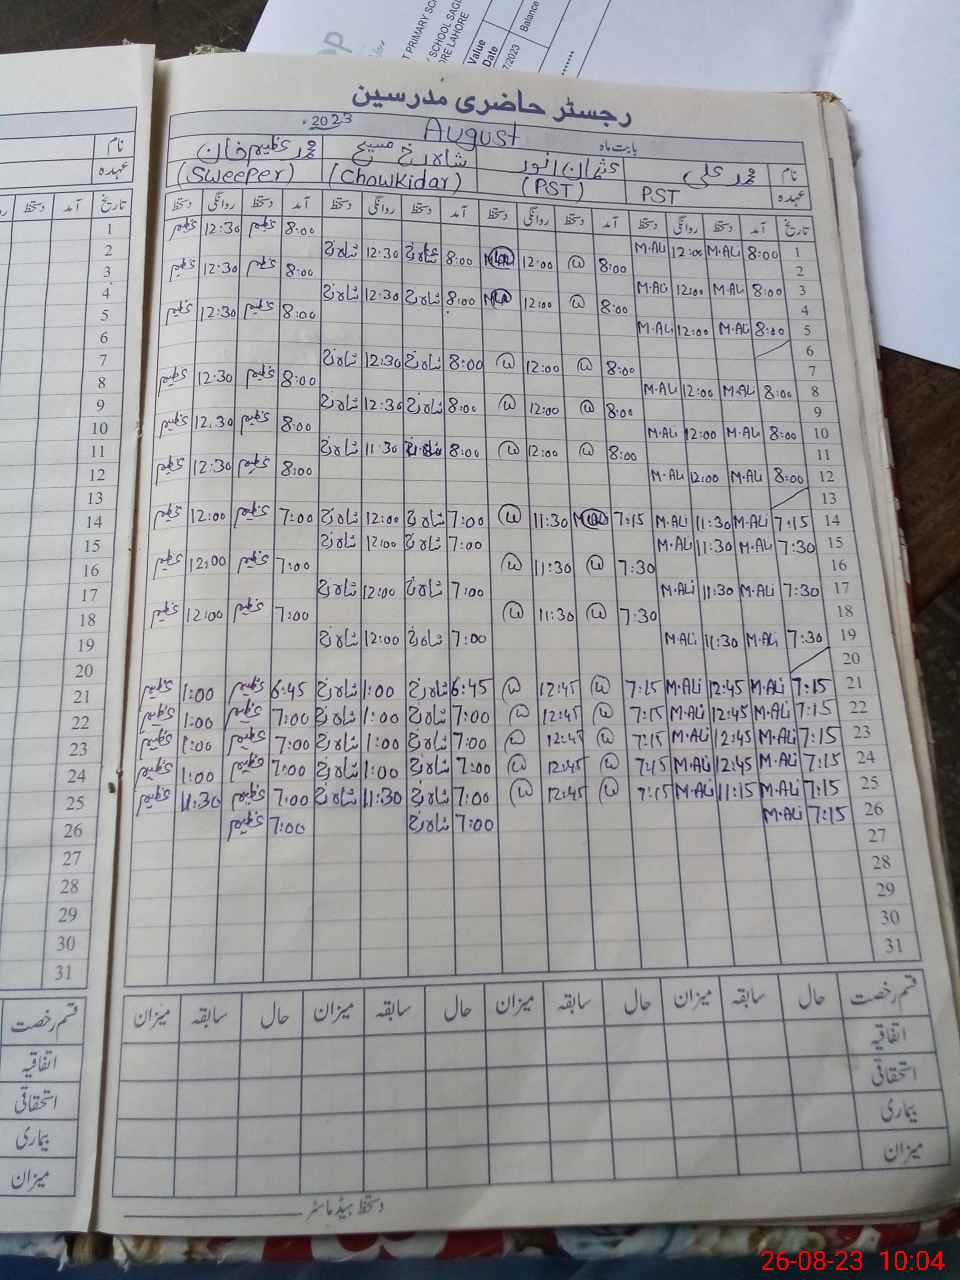 PRIMARY SCHO
SCHOOL SAGG
ORE LAHORE
Value Date
7/2023
Balance
رجسٹر حاضری مدرسین
بابت ماہ August 2023
نام محمد علی عثمان انور شاہ رخ مسیح محمد عظیم خان
عہدہ PST (PST) (Chowkidar) (Sweeper)
تاریخ آمد دستخط روانگی دستخط آمد دستخط روانگی دستخط آمد دستخط روانگی دستخط آمد دستخط روانگی دستخط
1 8:00 M.ALi 12:00 M.ALi 8:00 عظیم 12:30 عظیم
2 8:00 12:00 8:00 شاہ رخ 12:30 شاہ رخ
3 8:00 M.ALi 12:00 M.ALi 8:00 عظیم 12:30 عظیم
4 8:00 12:00 8:00 شاہ رخ 12:30 شاہ رخ
5 8:00 M.ALi 12:00 M.ALi 8:00 عظیم 12:30 عظیم
6
7 8:00 12:00 8:00 شاہ رخ 12:30 شاہ رخ
8 8:00 M.ALi 12:00 M.ALi 8:00 عظیم 12:30 عظیم
9 8:00 12:00 8:00 شاہ رخ 12:30 شاہ رخ
10 8:00 M.ALi 12:00 M.ALi 8:00 عظیم 12:30 عظیم
11 8:00 12:00 8:00 شاہ رخ 11:30 شاہ رخ
12 8:00 M.ALi 12:00 M.ALi 8:00 عظیم 12:30 عظیم
13
14 7:15 M.ALi 11:30 M.ALi 7:15 11:30 7:00 شاہ رخ 12:00 شاہ رخ 7:00 عظیم 12:00 عظیم
15 7:30 M.ALi 11:30 M.ALi 7:00 شاہ رخ 12:00 شاہ رخ
16 7:30 11:30 7:00 عظیم 12:00 عظیم
17 7:30 M.ALi 11:30 M.ALi 7:00 شاہ رخ 12:00 شاہ رخ
18 7:30 11:30 7:00 عظیم 12:00 عظیم
19 7:30 M.ALi 11:30 M.ALi 7:00 شاہ رخ 12:00 شاہ رخ
20
21 7:15 M.ALi 12:45 M.ALi 7:15 12:45 6:45 شاہ رخ 1:00 شاہ رخ 6:45 عظیم 1:00 عظیم
22 7:15 M.ALi 12:45 M.ALi 7:15 12:45 7:00 شاہ رخ 1:00 شاہ رخ 7:00 عظیم 1:00 عظیم
23 7:15 M.ALi 12:45 M.ALi 7:15 12:45 7:00 شاہ رخ 1:00 شاہ رخ 7:00 عظیم 1:00 عظیم
24 7:15 M.ALi 12:45 M.ALi 7:15 12:45 7:00 شاہ رخ 1:00 شاہ رخ 7:00 عظیم 1:00 عظیم
25 7:15 M.ALi 11:15 M.ALi 7:15 12:45 7:00 شاہ رخ 11:30 شاہ رخ 7:00 عظیم 11:30 عظیم
26 7:15 M.ALi 7:00 شاہ رخ 7:00 عظیم
27
28
29
30
31
قسم رخصت حال سابقہ میزان حال سابقہ میزان حال سابقہ میزان
اتفاقیہ
استحقاقی
بیماری
میزان
دستخط ہیڈ ماسٹر
نام
عہدہ
تاریخ آمد دستخط
1
2
3
4
5
6
7
8
9
10
11
12
13
14
15
16
17
18
19
20
21
22
23
24
25
26
27
28
29
30
31
قسم رخصت
اتفاقیہ
استحقاقی
بیماری
میزان
26-08-23 10:04